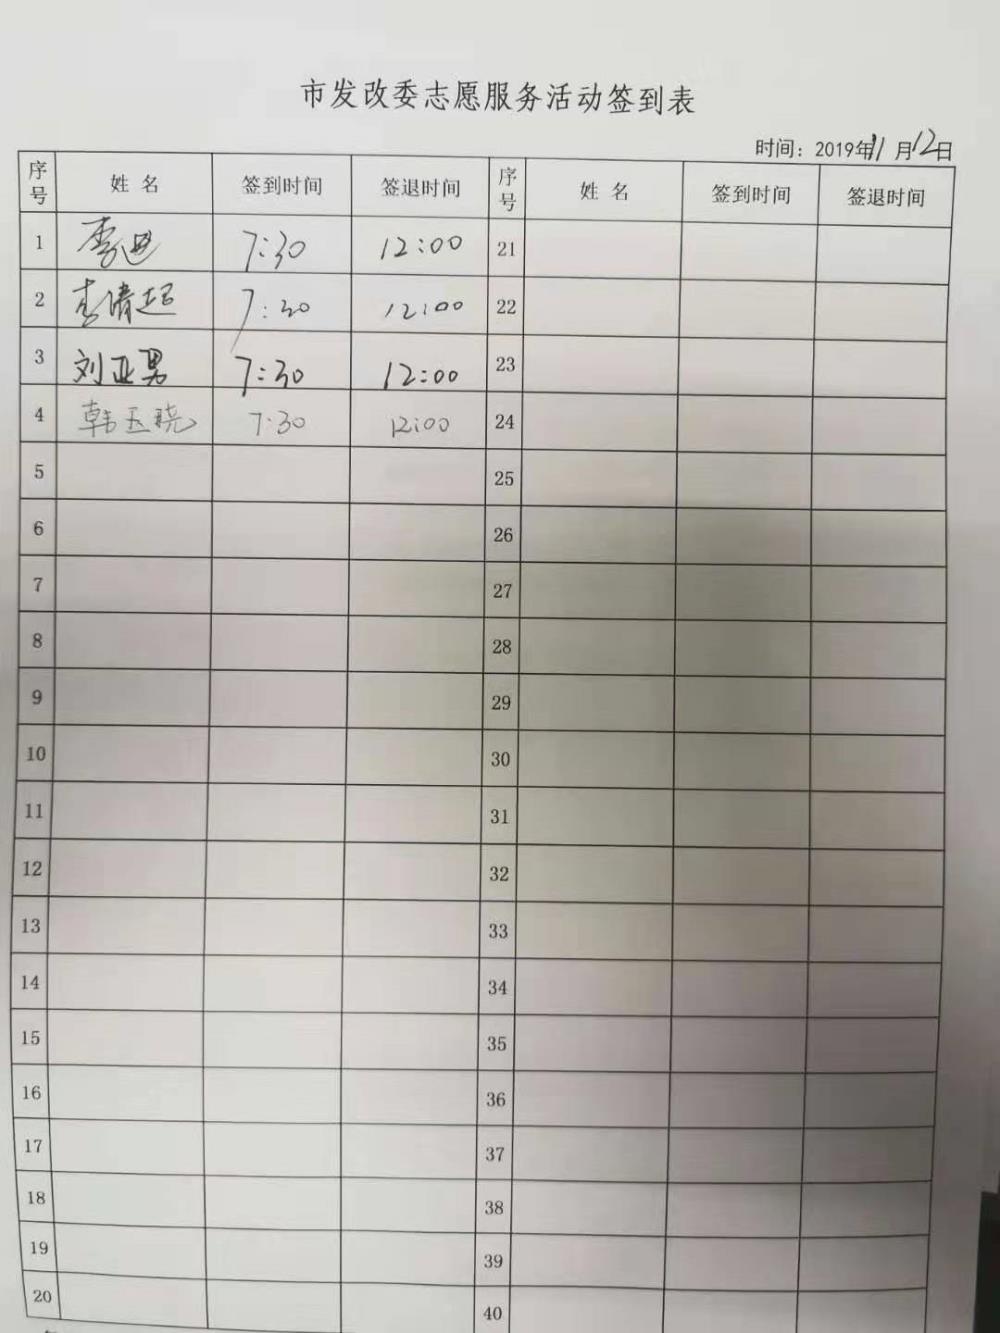 市发改委志愿服务活动签到表
时间：2019年11月12日
序号 姓名 签到时间 签退时间 序号 姓名 签到时间 签退时间
1 李迅 7:30 12:00 21
2 李倩超 7:30 12:00 22
3 刘亚男 7:30 12:00 23
4 韩玉晓 7:30 12:00 24
5 25
6 26
7 27
8 28
9 29
10 30
11 31
12 32
13 33
14 34
15 35
16 36
17 37
18 38
19 39
20 40